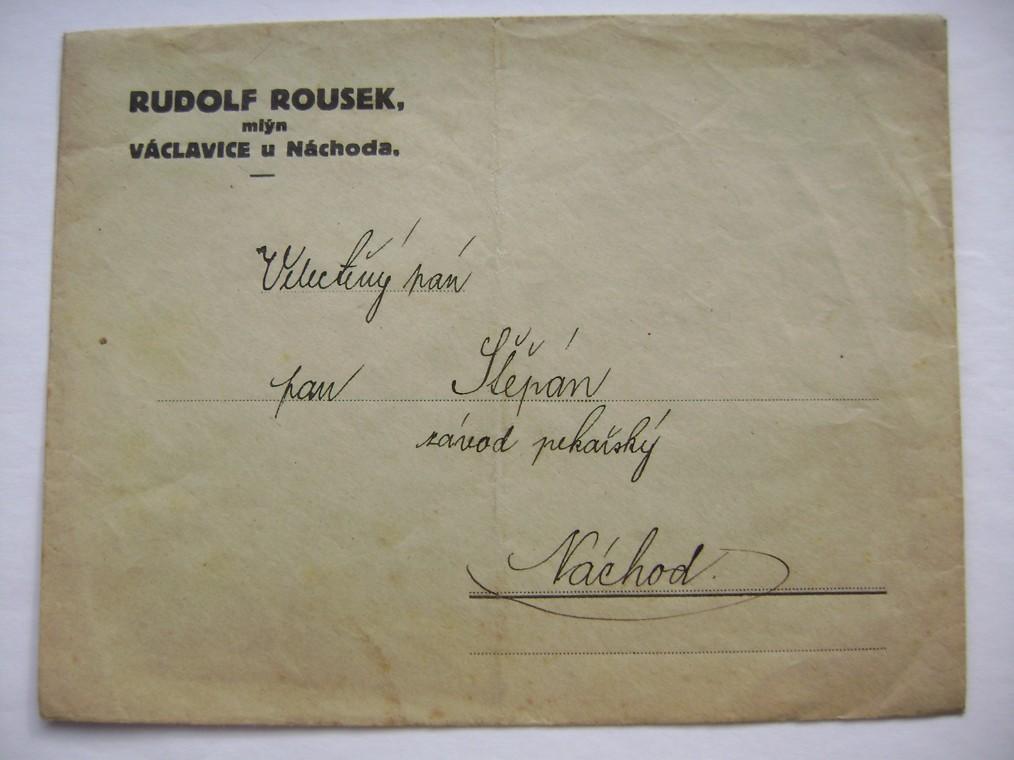 RUDOLF ROUSEK,
mlýn
VÁCLAVICE u Náchoda.
Velectěný pán
pan Štěpán
závod pekařský
Náchod.